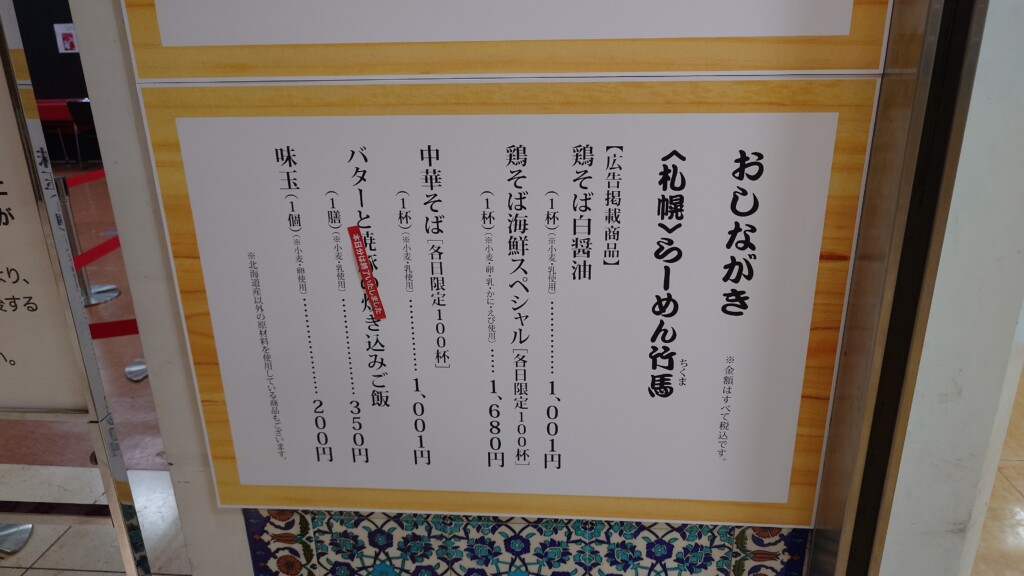 おしながき
※金額はすべて税込です。
〈札幌〉らーめん竹馬
ちくま
【広告掲載商品】
鶏そば白醤油
(1杯)(※小麦・乳使用)………………1,001円
鶏そば海鮮スペシャル[各日限定100杯]
(1杯)(※小麦・卵・乳・かに・えび使用)……1,680円
中華そば[各日限定100杯]
(1杯)(※小麦・乳使用)………………1,001円
バターと焼豚の炊き込みご飯
(1膳)(※小麦・乳使用)………………350円
味玉(1個)(※小麦・卵使用)………………200円
※北海道産以外の原材料を使用している商品もございます。
が
より、
する
い。